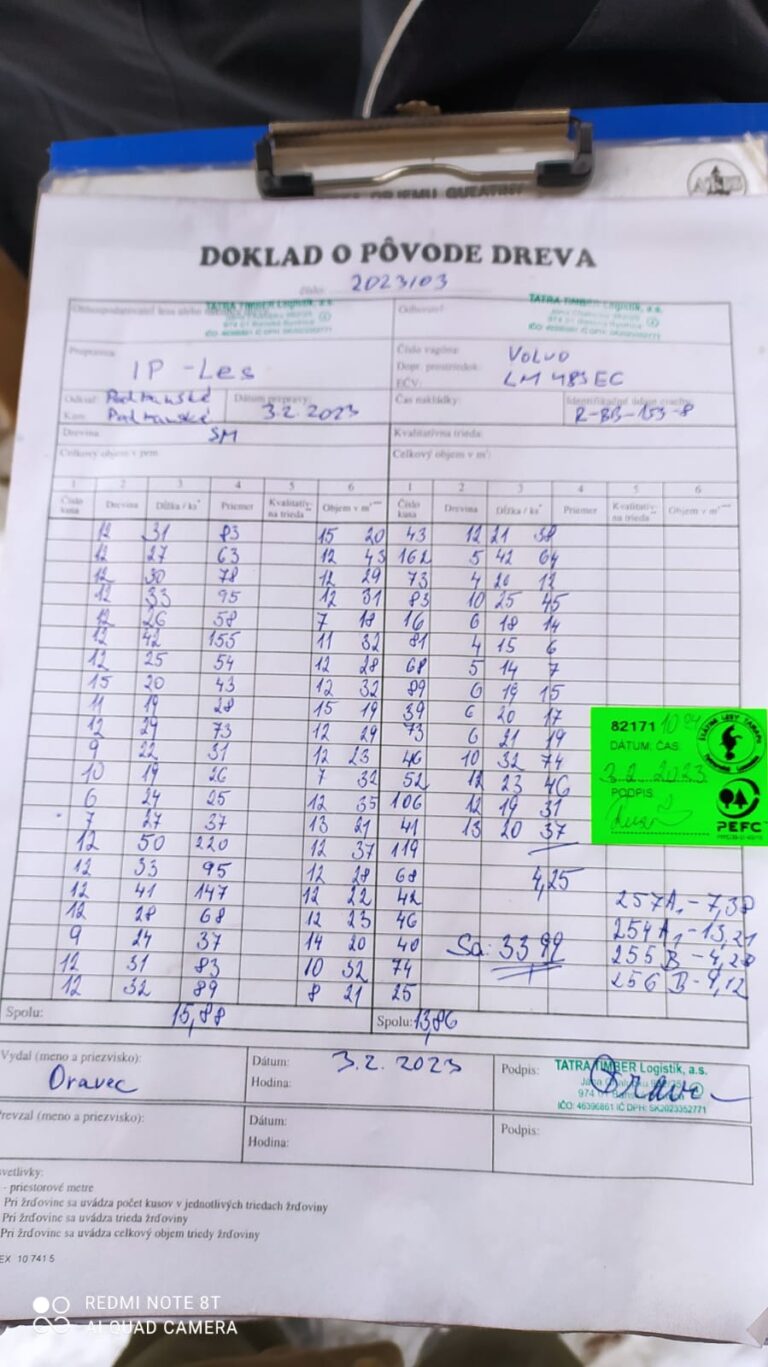 DOKLAD O PÔVODE DREVA
číslo: 2023/03
TATRA TIMBER Logistik, a.s.
TATRA TIMBER Logistik, a.s.
Odberateľ
Prepravca:
IP - Les
Číslo vagóna:
Dopr. prostriedok:
EČV:
VOLVO
LM 483EC
Odkiaľ
Kam:
Dátum prepravy:
3.2. 2023
Čas nakládky:
Identifikačné údaje ciachy
R-BB-153-8
Drevina: SM
Kvalitatívna trieda:
Celkový objem v prm:
Celkový objem v m³:
1 2 3 4 5 6 1 2 3 4 5 6
Číslo kusa Drevina Dĺžka / ks* Priemer Kvalitatív- na trieda** Objem v m³*** Číslo kusa Drevina Dĺžka / ks* Priemer Kvalitatív- na trieda** Objem v m³***
12 31 83 15 20 43 12 21 38
12 27 63 12 43 162 5 42 64
12 30 78 12 29 73 4 20 12
12 33 95 12 31 83 10 25 45
12 26 58 7 18 16 6 18 14
12 42 155 11 32 81 4 15 6
12 25 54 12 28 68 5 14 7
15 20 43 12 32 89 6 19 15
11 19 28 15 19 39 6 20 17
12 29 73 12 29 73 6 21 19
9 22 31 12 23 46 10 32 74
10 19 26 7 32 52 12 23 46
6 24 25 12 35 106 12 19 31
7 27 37 13 21 41 13 20 37
12 50 220 12 37 119
12 33 95 12 28 68 4,25
12 41 147 12 22 42 257A₁ - 7,38
12 28 68 12 23 46 254A₁ - 13,21
9 24 37 14 20 40 Sa: 33 99 255 B - 4,28
12 31 83 10 32 74 256 B - 9,12
12 32 89 8 21 25
Spolu: 15,88 Spolu: 13,86
82171
DÁTUM, ČAS:
3.2. 2023
PODPIS
ŠTÁTNE LESY TANAPu
PEFC
Vydal (meno a priezvisko):
Oravec
Dátum: 3.2. 2023
Hodina:
Podpis:
TATRA TIMBER Logistik, a.s.
IČO: 46396861 IČ DPH: SK2023352771
Prevzal (meno a priezvisko):
Dátum:
Hodina:
Podpis:
svetlivky:
- priestorové metre
Pri žrďovine sa uvádza počet kusov v jednotlivých triedach žrďoviny
Pri žrďovine sa uvádza trieda žrďoviny
Pri žrďovine sa uvádza celkový objem triedy žrďoviny
EX 10 741 5
REDMI NOTE 8T
AI QUAD CAMERA